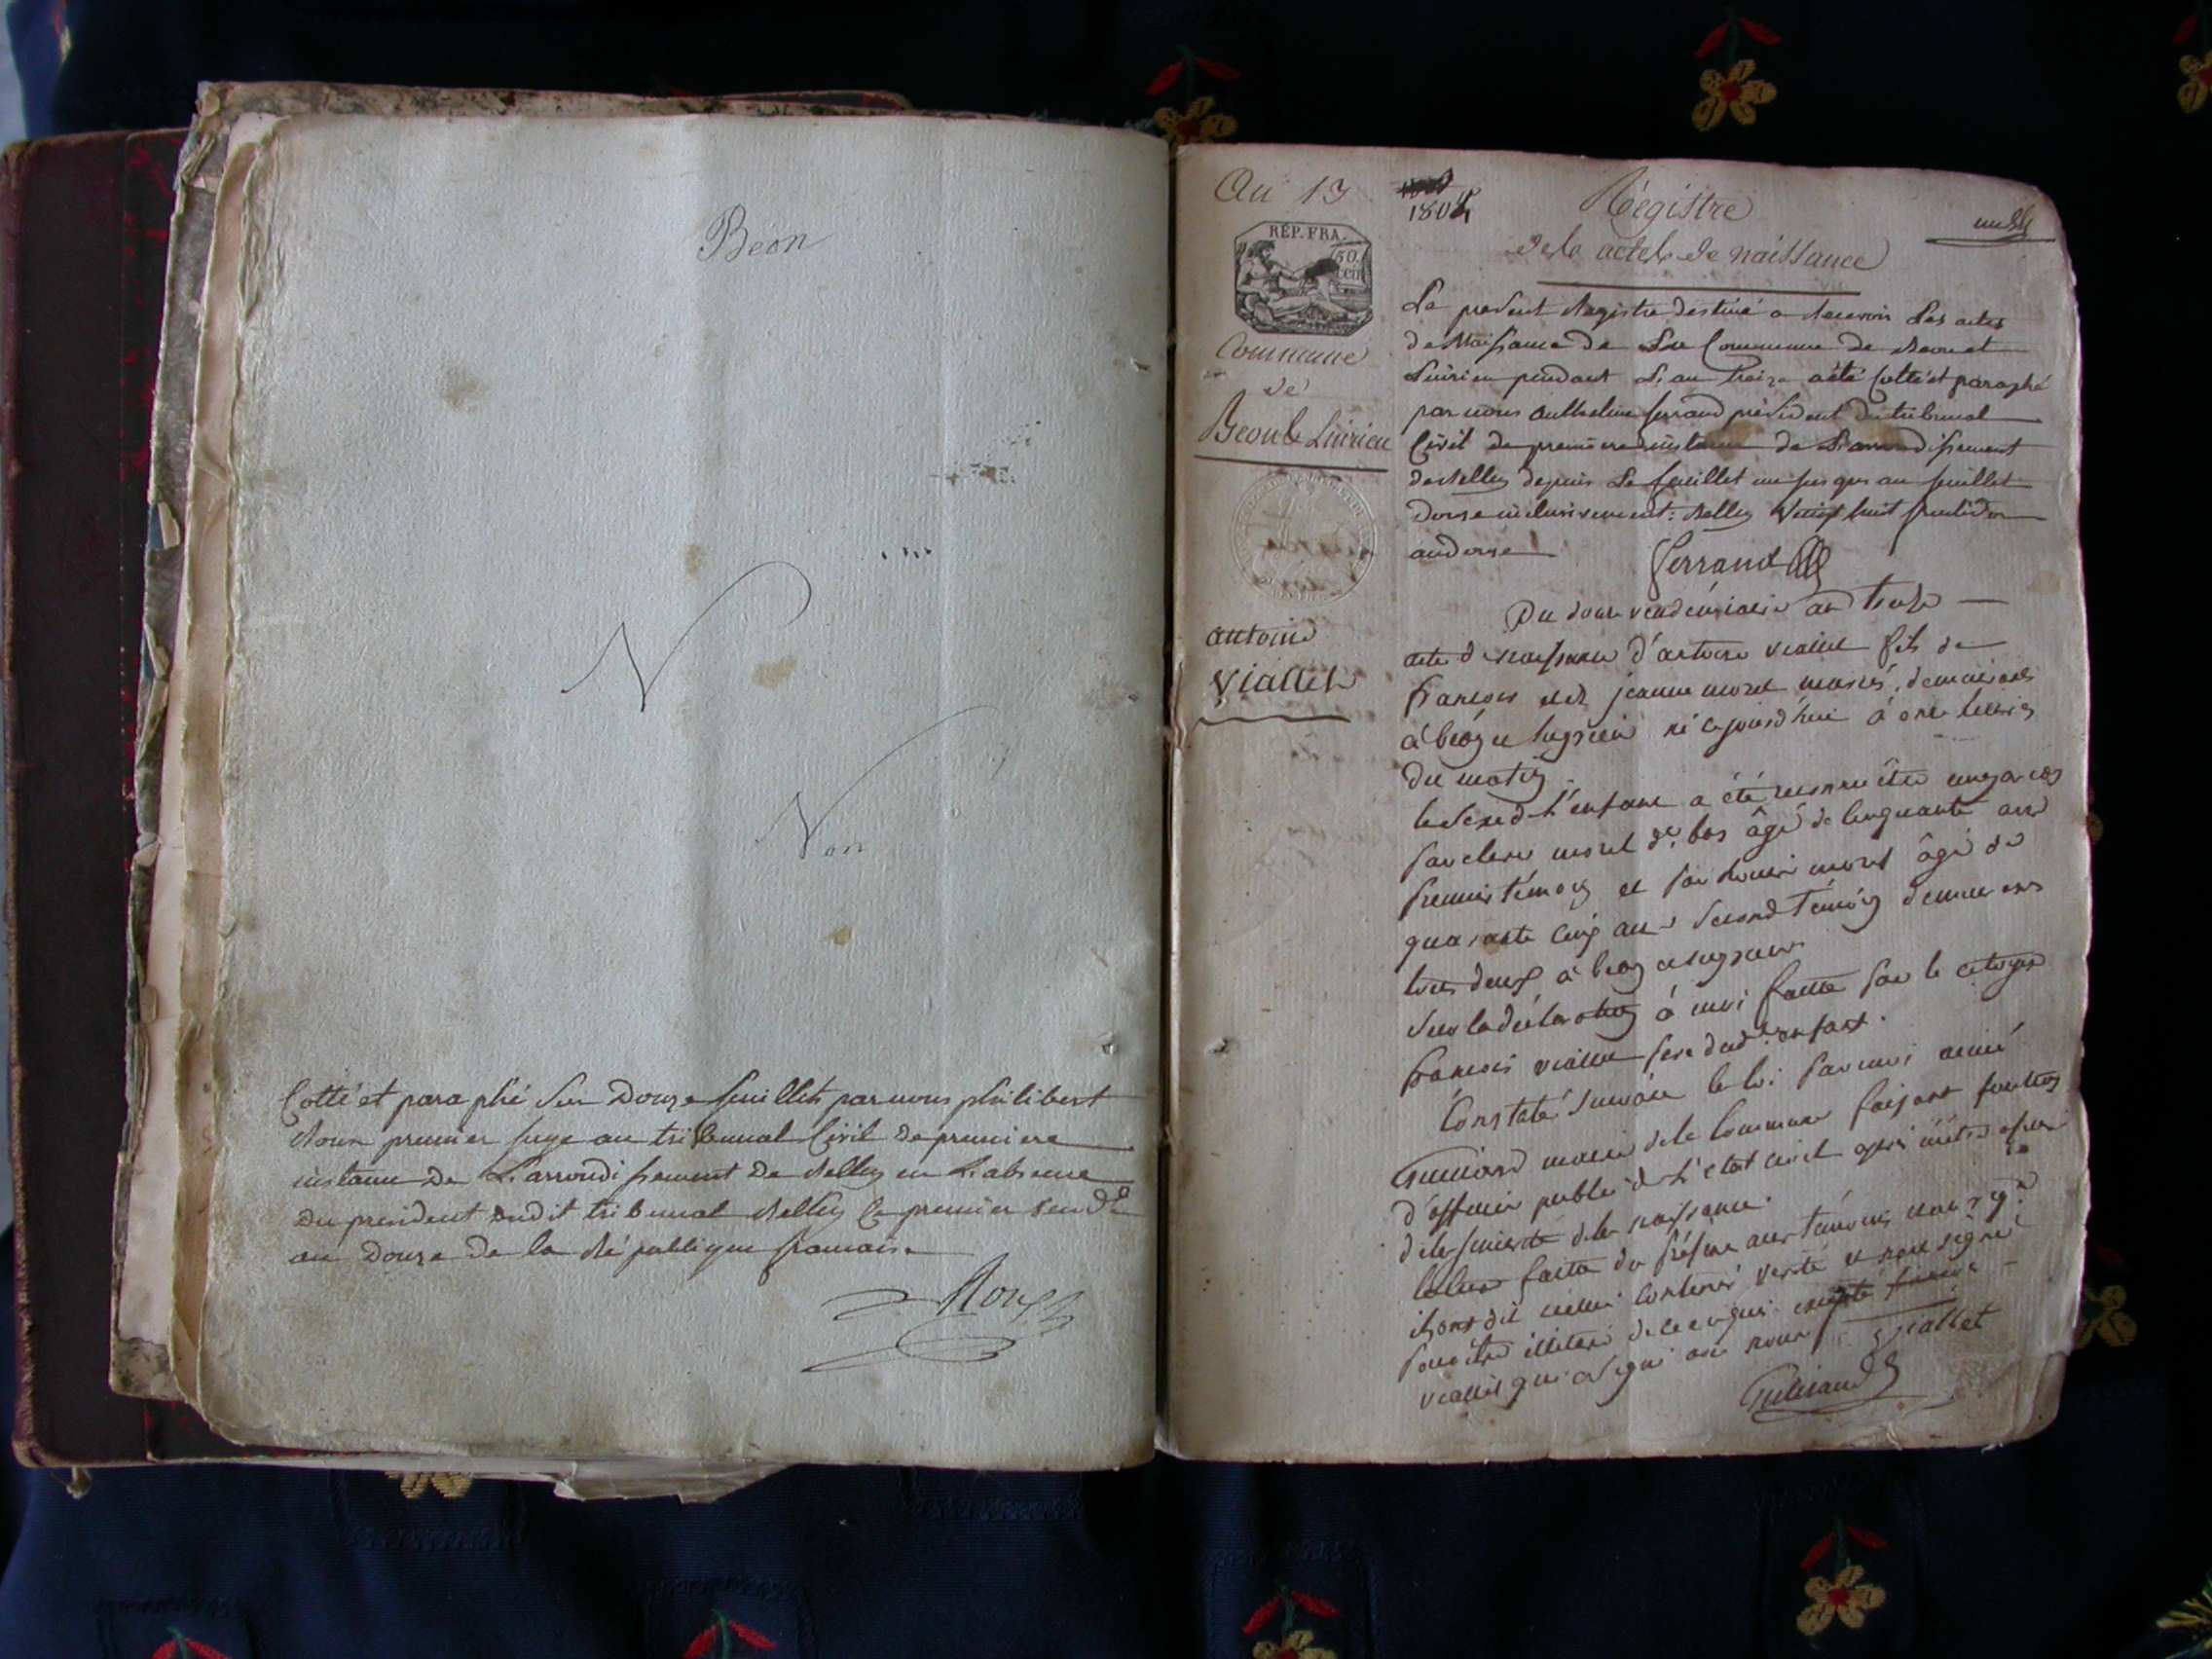 Béon
Cotté et paraphé sur Douze feuillets par nous philibert
Roux premier juge au tribunal Civil de premiere
instance de L'arrondissement de Belley en L'absence
du president dudit tribunal Belley le premier
an Douze de la République francaise
Roux
An 13
1804
Régistre
des actes de naissance
un
RÉP. FRA.
50.
cen
Commune
de
Beon le Luirieu
Le present Registre destiné a Recevoir Les actes
de Naissance de La Commune de Beon et
Luirieu pendant L'an treize a été Cotté et paraphé
par nous Anthelme ferrand président du tribunal
Civil de premiere instance de L'arrondissement
de Belley depuis Le feuillet un jusques au feuillet
Douze inclusivement: Belley Vingt huit fructidor
an douze
Ferrand
antoine
Viallet
Du douze vendémiaire an treize
acte de naissance d'antoine viallet fils de
francois et de jeanne morel mariés, demeurants
à béon et né cejourd'hui à onze heures
du matin.
le sexe de l'enfant a été reconnu être un garcon
par morel âgé de cinquante ans
premier témoin et par morel âgé de
quarante cinq ans second témoin demeurans
tous deux à beon
sur la déclaration à moi faitte par le citoyen
francois viallet père dudt enfant.
Constaté suivant la loi par moi aimé
Guilland maire de la Commune faisant fonctions
d'officier public de l'état civil après
de la naissance.
faitte du présent aux témoins
ils ont dit contenir verité et non signé
pour être illiteré de ce enquis excepté
viallet qui a signé avec nous
Viallet
Guilland